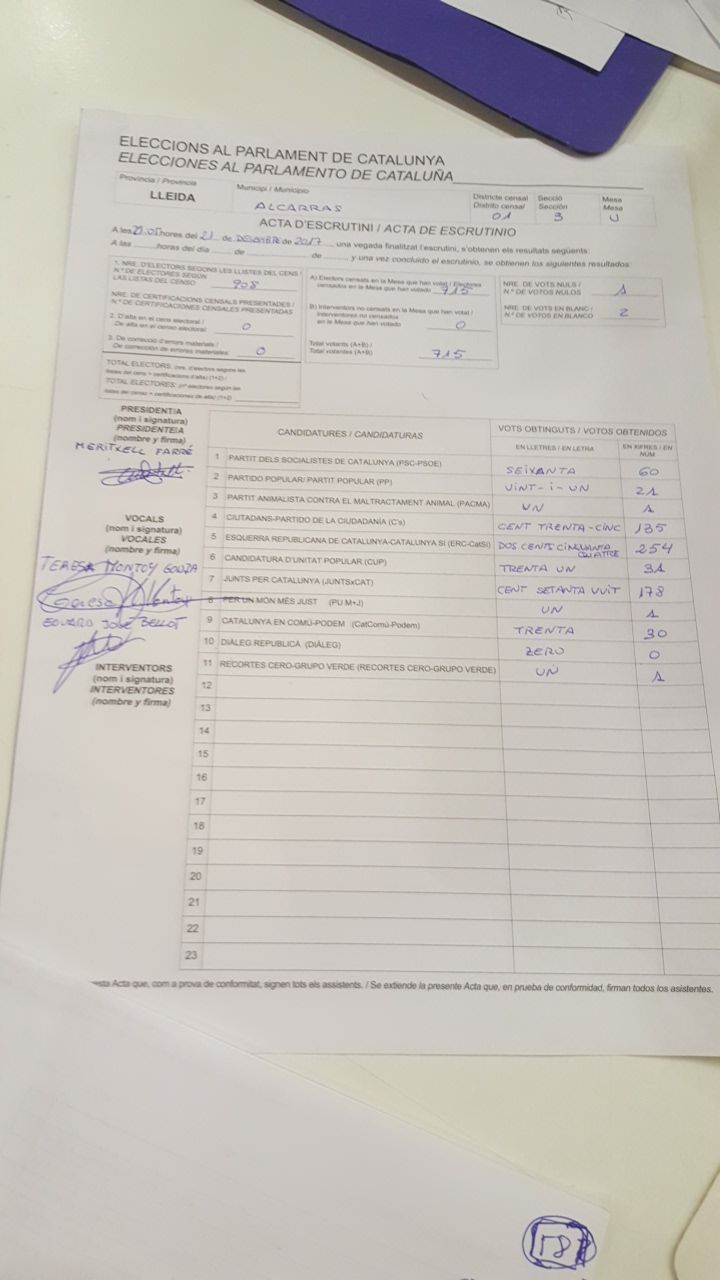 ELECCIONS AL PARLAMENT DE CATALUNYA
ELECCIONES AL PARLAMENTO DE CATALUÑA
Província / Provincia
LLEIDA
Municipi / Municipio
ALCARRAS
Districte censal
Distrito censal
01
Secció
Sección
3
Mesa
Mesa
U
ACTA D'ESCRUTINI / ACTA DE ESCRUTINIO
A les 21:05 hores del 21 de DESEMBRE de 2017, una vegada finalitzat l'escrutini, s'obtenen els resultats següents:
A las ........ horas del día ........ de ........ de ........ y una vez concluido el escrutinio, se obtienen los siguientes resultados:
1. NRE. D'ELECTORS SEGONS LES LLISTES DEL CENS /
N.º DE ELECTORES SEGÚN
LAS LISTAS DEL CENSO
908
NRE. DE CERTIFICACIONS CENSALS PRESENTADES /
N.º DE CERTIFICACIONES CENSALES PRESENTADAS
2. D'alta en el cens electoral /
De alta en el censo electoral:
0
3. De correcció d'errors materials /
De corrección de errores materiales:
0
TOTAL ELECTORS: (nre. d'electors segons les
llistes del cens + certificacions d'alta) (1+2) /
TOTAL ELECTORES: (nº electores según las
listas del censo + certificaciones de alta) (1+2)
A) Electors censats en la Mesa que han votat / Electores
censados en la Mesa que han votado
715
B) Interventors no censats en la Mesa que han votat /
Interventores no censados
en la Mesa que han votado
0
Total votants (A+B) /
Total votantes (A+B)
715
NRE. DE VOTS NULS /
N.º DE VOTOS NULOS
1
NRE. DE VOTS EN BLANC /
N.º DE VOTOS EN BLANCO
2
PRESIDENT/A
(nom i signatura)
PRESIDENTE/A
(nombre y firma)
MERITXELL FARRÉ
VOCALS
(nom i signatura)
VOCALES
(nombre y firma)
TERESA MONTOY GOUZA
EDUARD JOSÉ BELLOT
INTERVENTORS
(nom i signatura)
INTERVENTORES
(nombre y firma)
CANDIDATURES / CANDIDATURAS
VOTS OBTINGUTS / VOTOS OBTENIDOS
EN LLETRES / EN LETRA
EN XIFRES / EN NÚM
1 PARTIT DELS SOCIALISTES DE CATALUNYA (PSC-PSOE) SEIXANTA 60
2 PARTIDO POPULAR/ PARTIT POPULAR (PP) VINT-I-UN 21
3 PARTIT ANIMALISTA CONTRA EL MALTRACTAMENT ANIMAL (PACMA) UN 1
4 CIUTADANS-PARTIDO DE LA CIUDADANÍA (C's) CENT TRENTA-CINC 135
5 ESQUERRA REPUBLICANA DE CATALUNYA-CATALUNYA SÍ (ERC-CatSí) DOS CENTS CINQUANTA QUATRE 254
6 CANDIDATURA D'UNITAT POPULAR (CUP) TRENTA UN 31
7 JUNTS PER CATALUNYA (JUNTSxCAT) CENT SETANTA VUIT 178
8 PER UN MÓN MÉS JUST (PU M+J) UN 1
9 CATALUNYA EN COMÚ-PODEM (CatComú-Podem) TRENTA 30
10 DIÀLEG REPUBLICÀ (DIÀLEG) ZERO 0
11 RECORTES CERO-GRUPO VERDE (RECORTES CERO-GRUPO VERDE) UN 1
12
13
14
15
16
17
18
19
20
21
22
23
esta Acta que, com a prova de conformitat, signen tots els assistents. / Se extiende la presente Acta que, en prueba de conformidad, firman todos los asistentes.